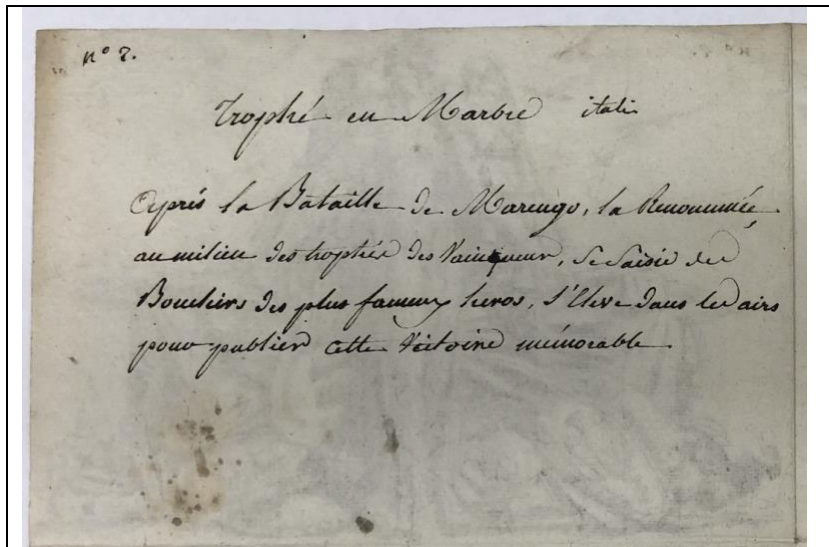 n° 7.
Trophé en Marbre itali
Après la Bataille de Marengo, la Renommée,
au milieu des trophée des Vainqueur, Se Saisie des
Boucliers des plus fameux heros, S'Eleve dans les airs
pour publier cette Victoire mémorable.